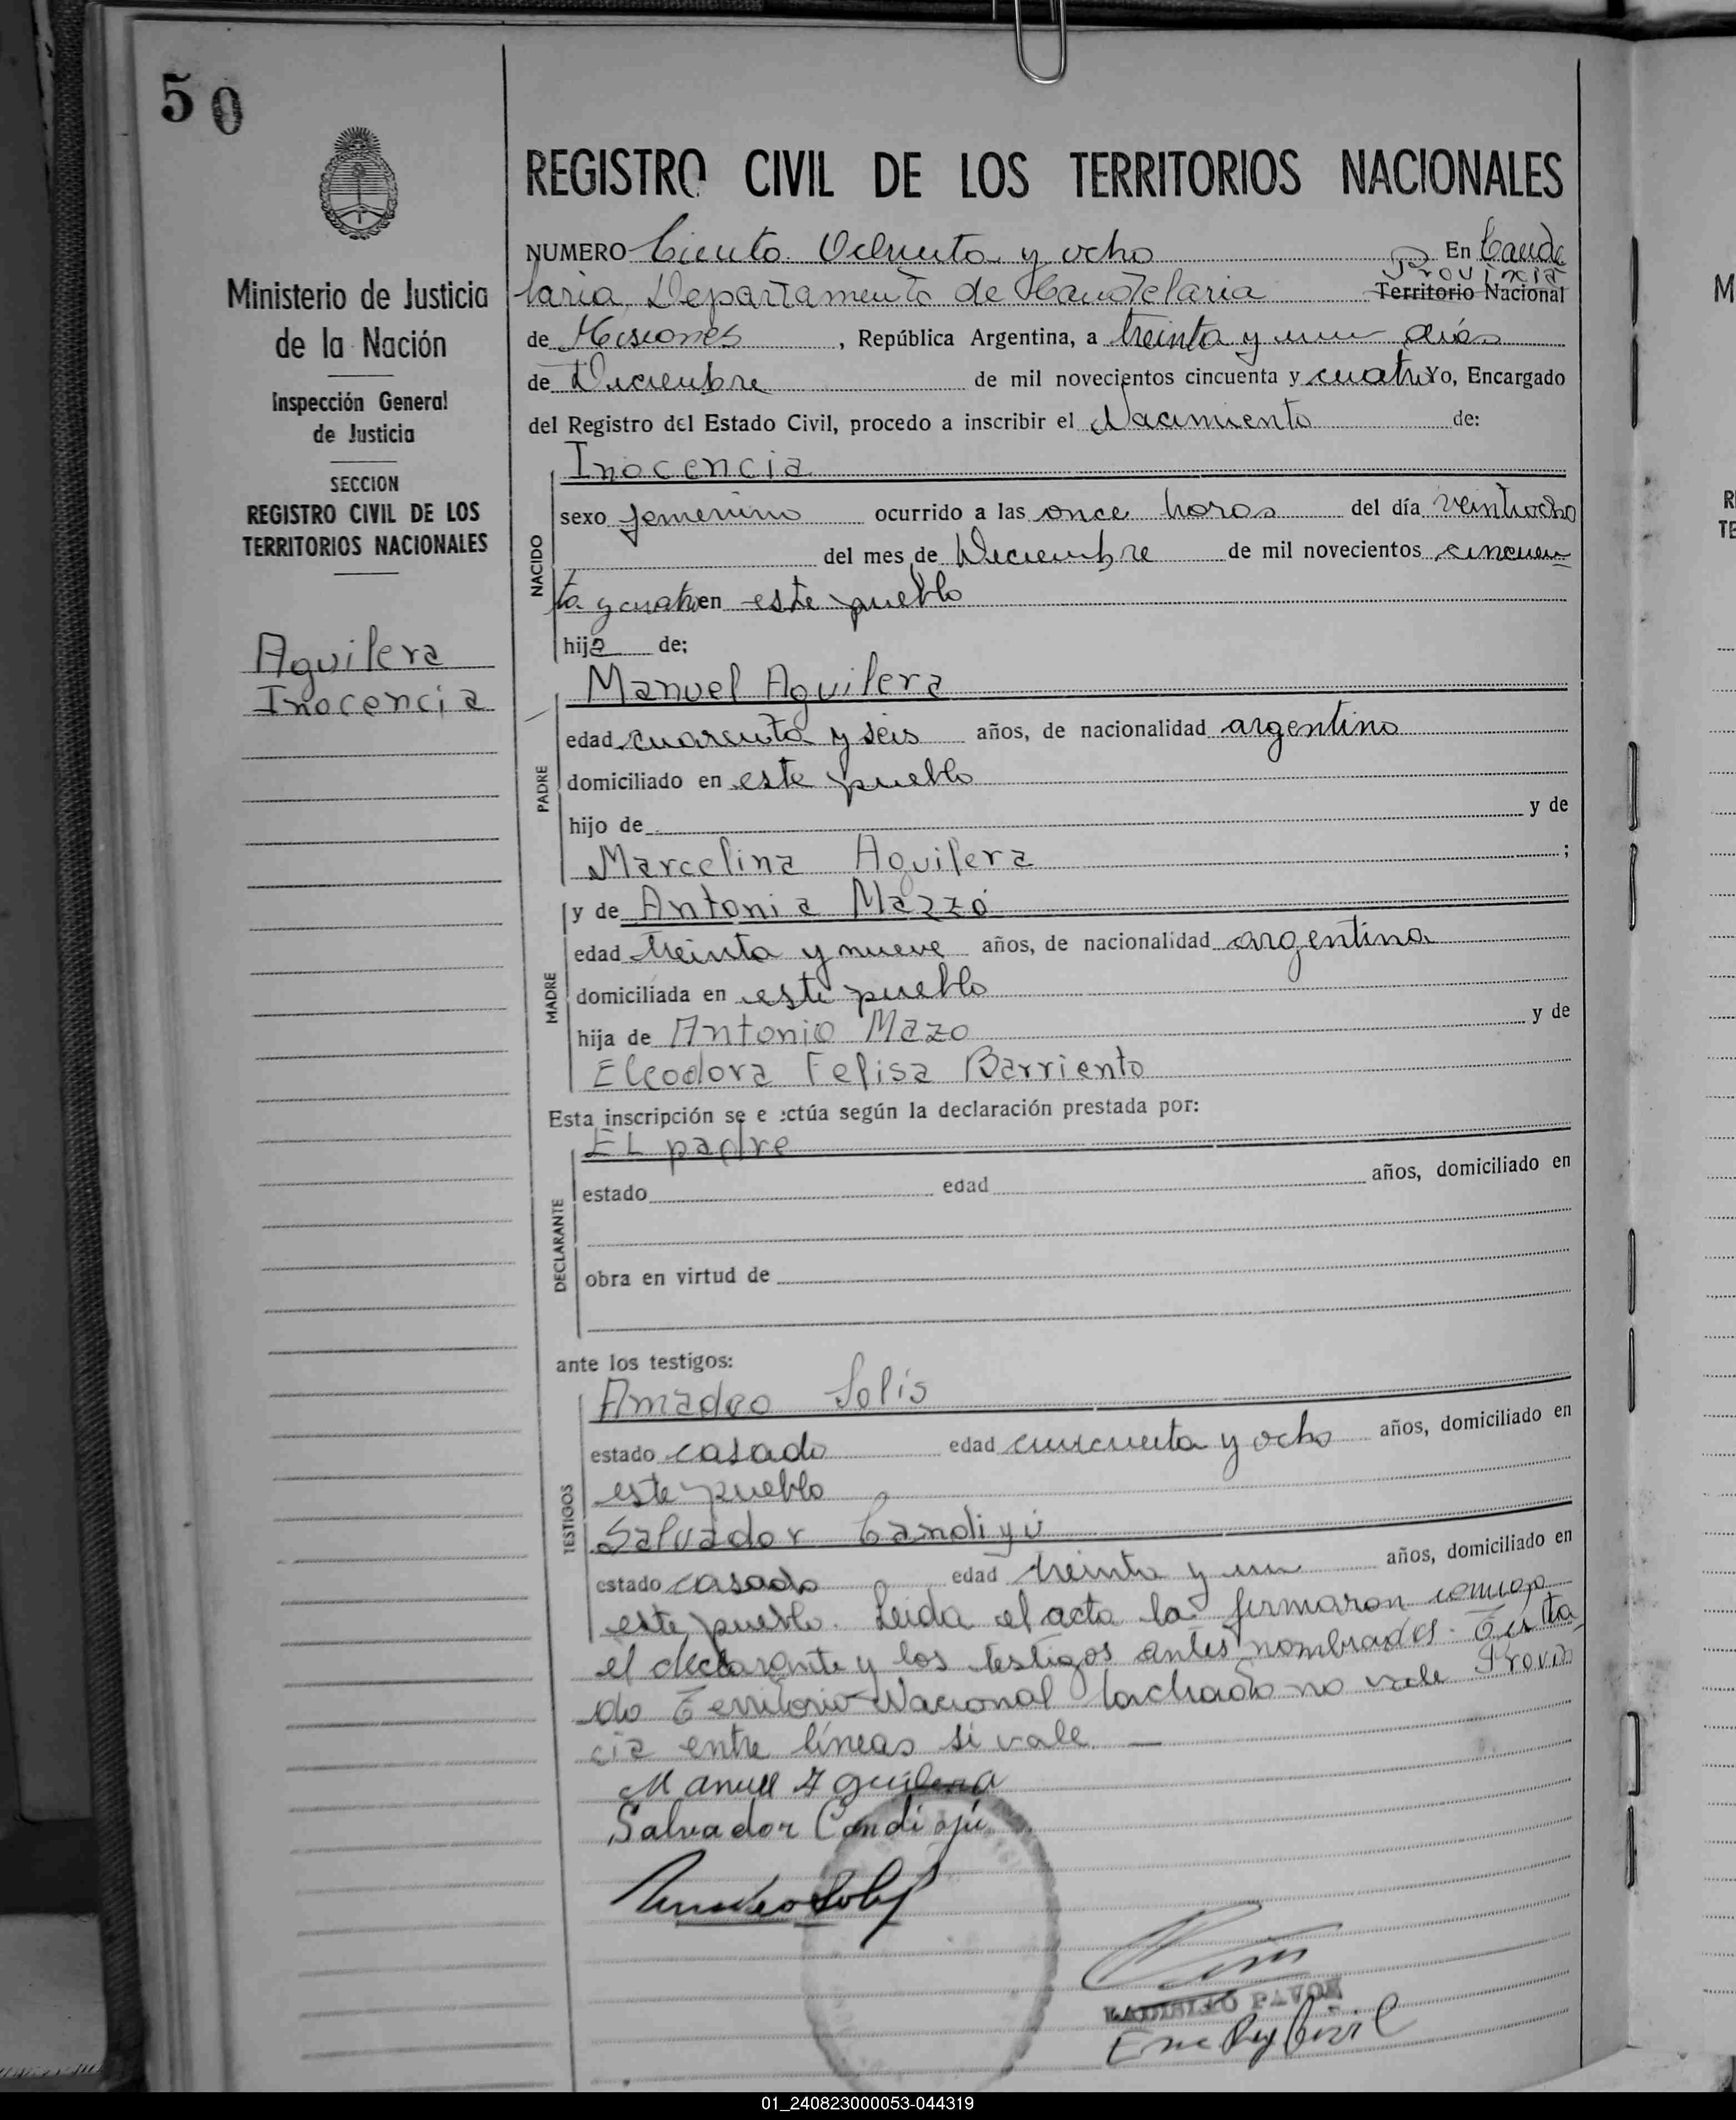 50
REGISTRO CIVIL DE LOS TERRITORIOS NACIONALES
Ministerio de Justicia
de la Nación
Inspección General
de Justicia
SECCION
REGISTRO CIVIL DE LOS
TERRITORIOS NACIONALES
Aguilera
Inocencia
NUMERO Ciento Ochenta y ocho En Cande
Provincia
laria Departamento de Candelaria Territorio Nacional
de Misiones, República Argentina, a treinta y un días
de Diciembre de mil novecientos cincuenta y cuatro Yo, Encargado
del Registro del Estado Civil, procedo a inscribir el Nacimiento de:
Inocencia
NACIDO
sexo femenino ocurrido a las once horas del día veintiocho
del mes de Diciembre de mil novecientos cincuen
ta y cuatro en este pueblo
hija de:
Manuel Aguilera
PADRE
edad cuarenta y seis años, de nacionalidad argentino
domiciliado en este pueblo
hijo de y de
Marcelina Aguilera ;
y de Antonia Mazzó
MADRE
edad treinta y nueve años, de nacionalidad argentina
domiciliada en este pueblo
hija de Antonio Mazo y de
Eleodora Felisa Barriento
Esta inscripción se e ectúa según la declaración prestada por:
EL padre
DECLARANTE
estado edad años, domiciliado en
obra en virtud de
ante los testigos:
Amadeo Solis
TESTIGOS
estado casado edad cincuenta y ocho años, domiciliado en
este pueblo
Salvador Candiyú
estado casado edad treinta y un años, domiciliado en
este pueblo. Leida el acta la firmaron conmigo
el declarante y los testigos antes nombrados. Testa
do Territorio Nacional tachado no vale Provin
cia entre líneas si vale. —
Manuel Aguilera
Salvador Candiyú
Amadeo Solis
LADISLAO PAVON
Enc Reg Civil
01_240823000053-044319